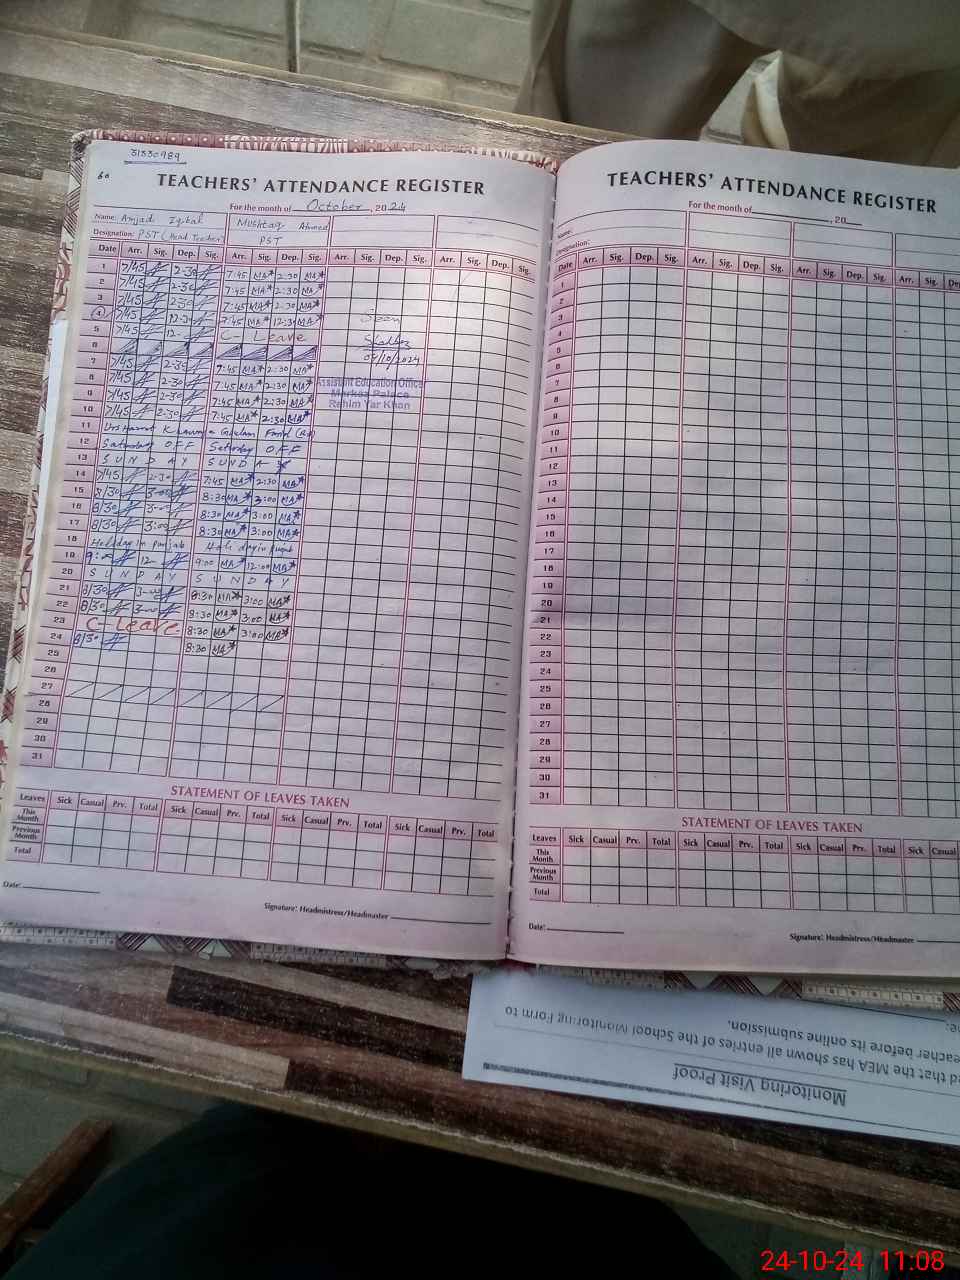 31330989
60
TEACHERS' ATTENDANCE REGISTER
For the month of October, 2024
Name: Amjad Iqbal Mushtaq Ahmed
Designation: PST (Head Teacher) PST
Date Arr. Sig. Dep. Sig. Arr. Sig. Dep. Sig. Arr. Sig. Dep. Sig. Arr. Sig. Dep. Sig.
1 7/45 2-30 7:45 MA 2:30 MA
2 7/45 2-30 7:45 MA 2:30 MA
3 7/45 2-30 7:45 MA 2:30 MA
4 7/45 12-30 7:45 MA 12:30 MA Seen
5 7/45 12- C- Leave
6 07/10/2024
7 7/45 2-30 7:45 MA 2:30 MA
8 7/45 2-30 7:45 MA 2:30 MA Assistant Education Officer
9 7/45 2-30 7:45 MA 2:30 MA Markaz
10 7/45 2-30 7:45 MA 2:30 MA Rahim Yar Khan
11 Urs Hazrat Khawaja Ghulam Farid (RA)
12 Saturday OFF Saturday OFF
13 SUNDAY SUNDAY
14 7/45 2-30 7:45 MA 2:30 MA
15 8/30 3-00 8:30 MA 3:00 MA
16 8/30 3-00 8:30 MA 3:00 MA
17 8/30 3:00 8:30 MA 3:00 MA
18 Holiday in Punjab Holiday in Punjab
19 9:00 12- 9:00 MA 12:00 MA
20 SUNDAY SUNDAY
21 8/30 3-00 8:30 MA 3:00 MA
22 8/30 3-00 8:30 MA 3:00 MA
23 C- Leave 8:30 MA 3:00 MA
24 8/30 8:30 MA
25
26
27
28
29
30
31
STATEMENT OF LEAVES TAKEN
Leaves Sick Casual Prv. Total Sick Casual Prv. Total Sick Casual Prv. Total Sick Casual Prv. Total
This Month
Previous Month
Total
Date:
Signature: Headmistress/Headmaster
TEACHERS' ATTENDANCE REGISTER
For the month of , 20
Name:
Designation:
Date Arr. Sig. Dep. Sig. Arr. Sig. Dep. Sig. Arr. Sig. Dep. Sig. Arr. Sig. Dep
1
2
3
4
5
6
7
8
9
10
11
12
13
14
15
16
17
18
19
20
21
22
23
24
25
26
27
28
29
30
31
STATEMENT OF LEAVES TAKEN
Leaves Sick Casual Prv. Total Sick Casual Prv. Total Sick Casual Prv. Total Sick Casual
This Month
Previous Month
Total
Date:
Signature: Headmistress/Headmaster
Monitoring Visit Proof
ed that the MEA has shown all entries of the School Monitoring Form to
eacher before its online submission.
24-10-24 11:08